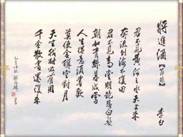 將進酒【節錄】
李白
君不見黃河之水天上來
奔流到海不復回
君不見高堂明鏡悲白髮
朝如青絲暮成雪
人生得意須盡歡
莫使金樽空對月
天生我材必有用
千金散盡還復來